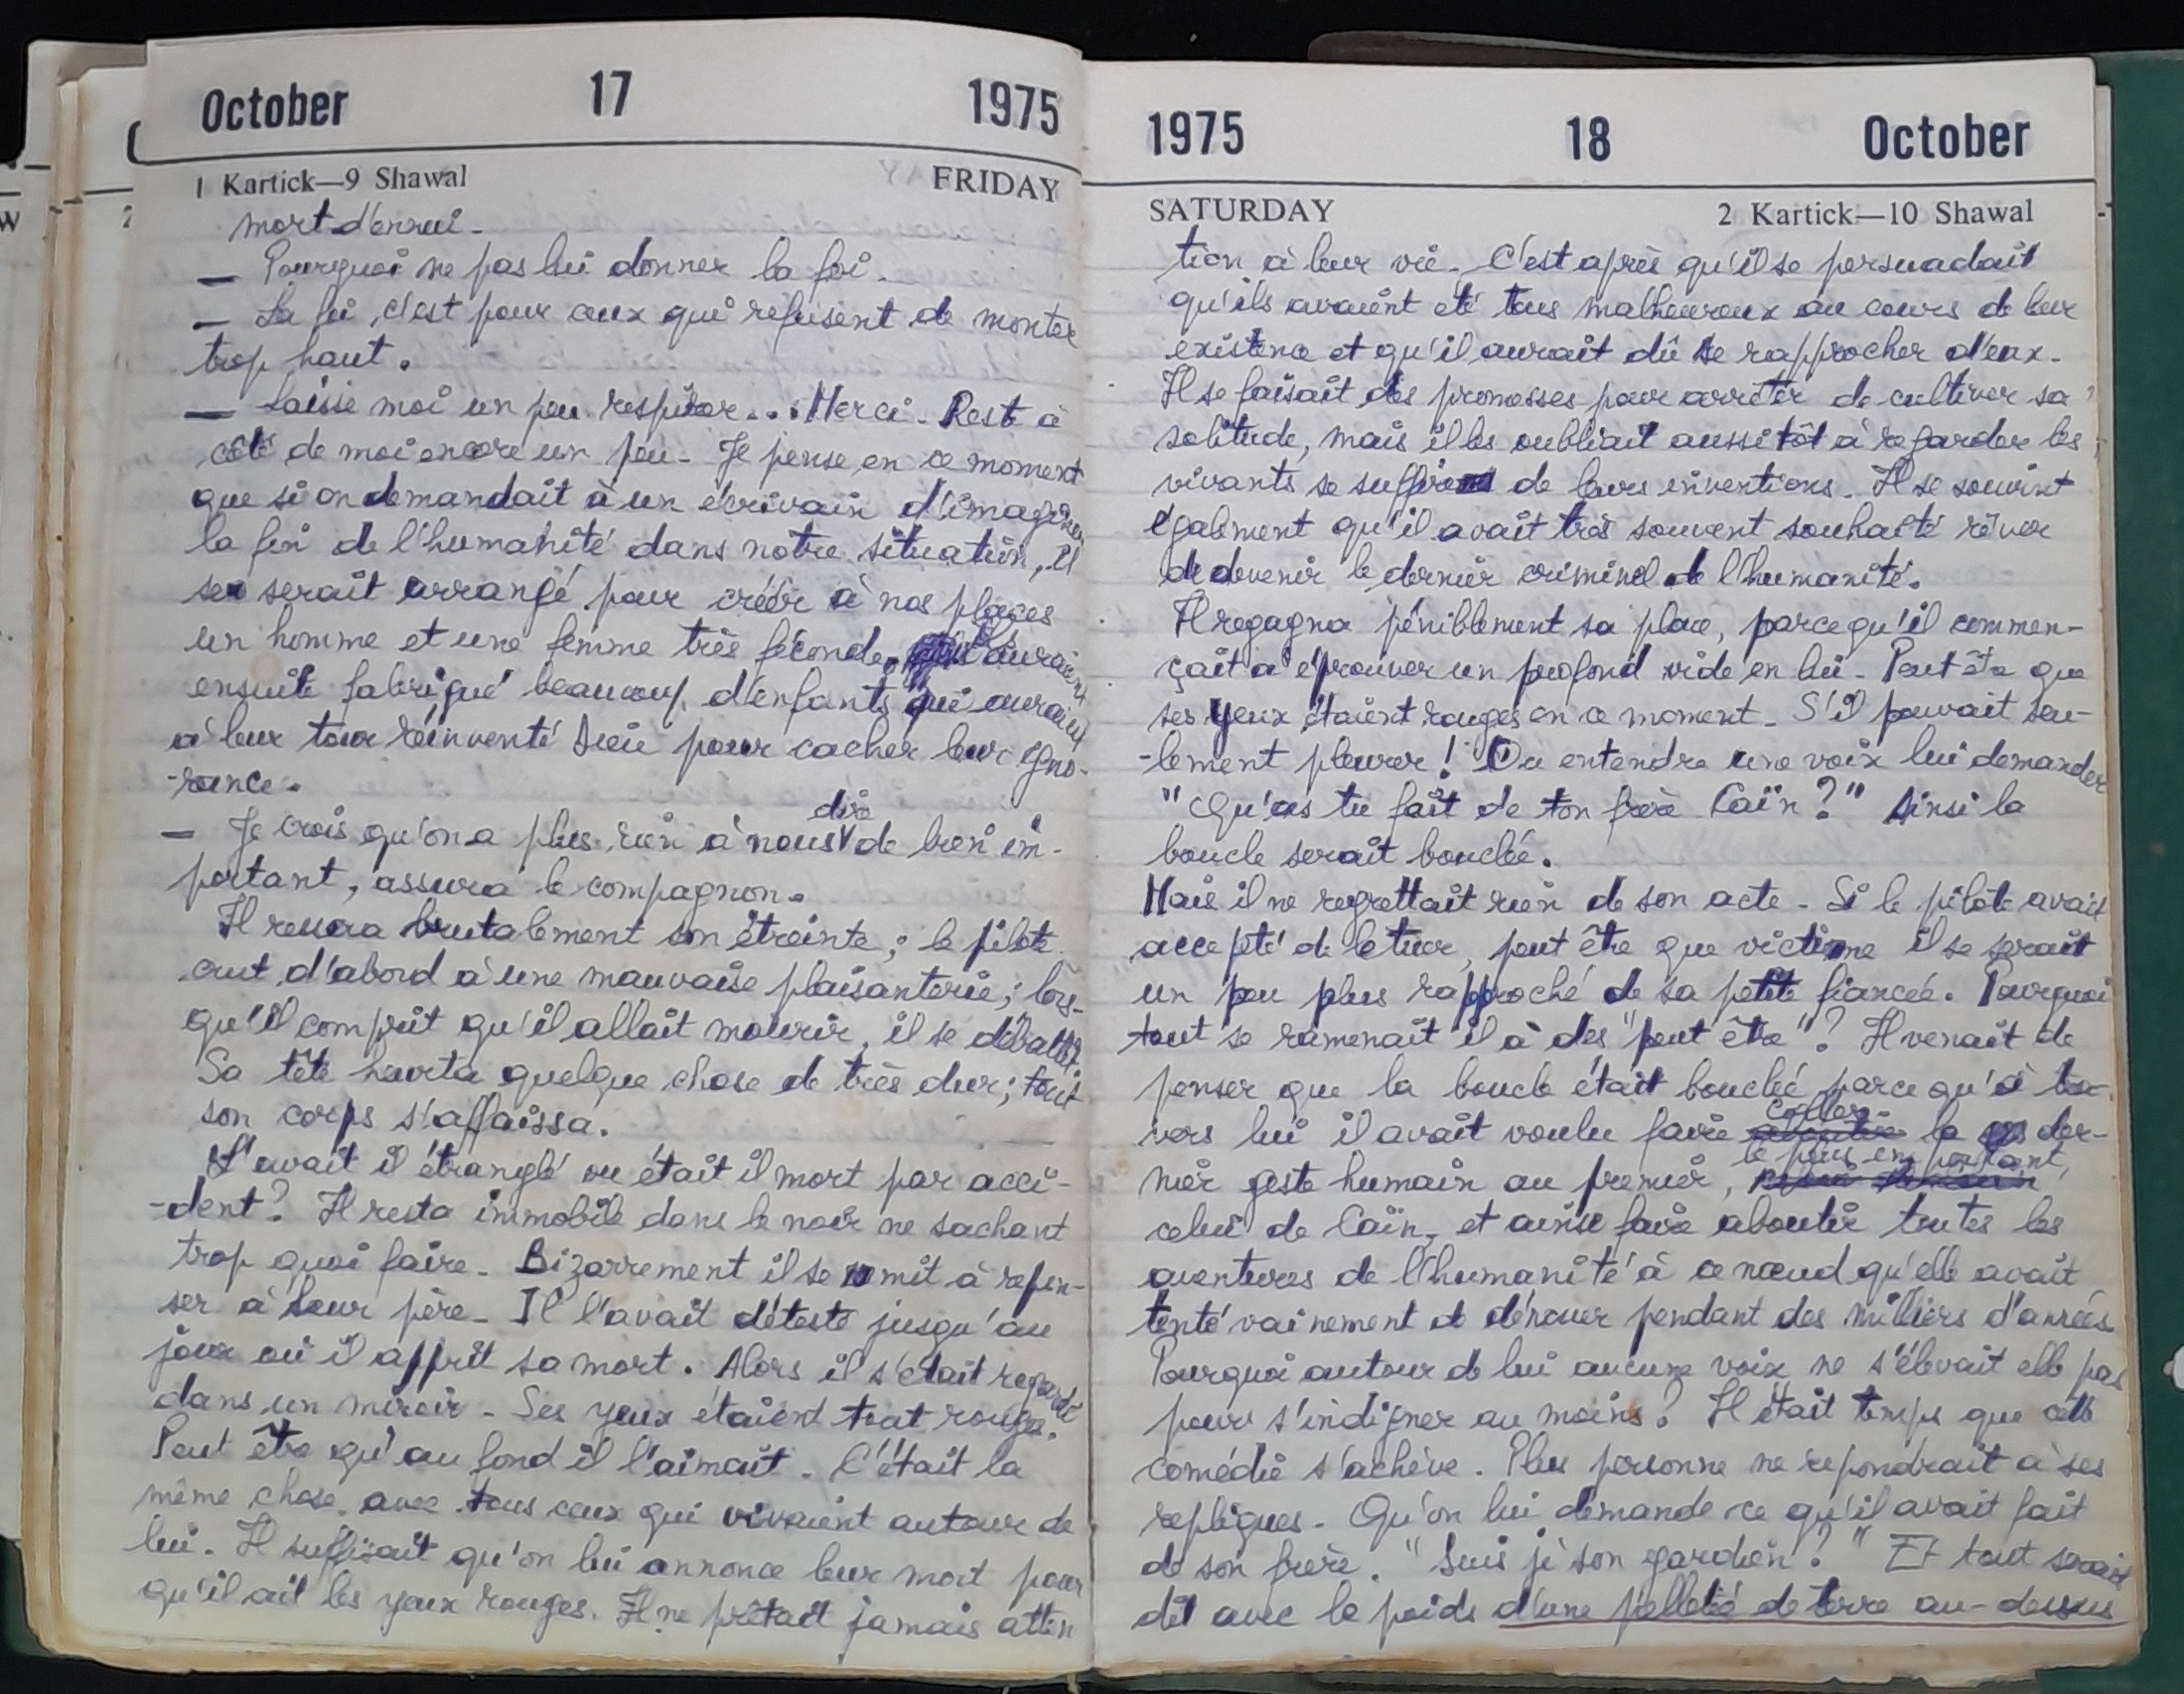 October 17 1975
1 Kartick—9 Shawal FRIDAY
mort d'ennui.
— Pourquoi ne pas lui donner la foi.
— La foi, c'est pour ceux qui refusent de monter
trop haut.
— Laisse moi un peu respirer... Merci. Reste à
côté de moi encore un peu. Je pense en ce moment
que si on demandait à un écrivain d'imaginer
la fin de l'humanité dans notre situation, il
se serait arrangé pour créer à nos places
un homme et une femme très féconde. Ils auraient
ensuite fabriqué beaucoup d'enfants qui auraient
à leur tour réinventé Dieu pour cacher leur igno-
-rance.
— Je crois qu'on a plus rien à nous dire de bien im-
portant, assura le compagnon.
Il resserra brutalement son étreinte; le pilote
crut d'abord à une mauvaise plaisanterie; lors-
qu'il comprit qu'il allait mourir, il se débattit.
Sa tête heurta quelque chose de très dur; tout
son corps s'affaissa.
L'avait il étranglé ou était il mort par acci-
-dent? Il resta immobile dans le noir ne sachant
trop quoi faire. Bizarrement il se mit à repen-
ser à leur père. Il l'avait détesté jusqu'au
jour où il apprit sa mort. Alors il s'était regardé
dans un miroir. Ses yeux étaient tout rouge.
Peut être qu'au fond il l'aimait. C'était la
même chose avec tous ceux qui vivaient autour de
lui. Il suffisait qu'on lui annonce leur mort pour
qu'il ait les yeux rouges. Il ne prêtait jamais atten
1975 18 October
SATURDAY 2 Kartick—10 Shawal
tion à leur vie. C'est après qu'il se persuadait
qu'ils avaient été tous malheureux au cours de leur
existence et qu'il aurait dû se rapprocher d'eux.
Il se faisait des promesses pour arrêter de cultiver sa
solitude, mais il les oubliait aussitôt à regarder les
vivants se suffire de leurs inventions. Il se souvint
également qu'il avait très souvent souhaité rêver
de devenir le dernier criminel de l'humanité.
Il regagna péniblement sa place, parcequ'il commen-
çait à éprouver un profond vide en lui. Peut être que
ses yeux étaient rouges en ce moment. S'il pouvait seu-
-lement pleurer! Ou entendre une voix lui demander
"Qu'as tu fait de ton frère Caïn?" Ainsi la
boucle serait bouclée.
Mais il ne regrettait rien de son acte. Si le pilote avait
accepté de le tuer, peut être que victime il se serait
un peu plus rapproché de sa petite fiancée. Pourquoi
tout se ramenait il à des "peut être"? Il venait de
penser que la boucle était bouclée parce qu'à tra-
vers lui il avait voulu faire coller le der-
nier geste humain au premier, le plus important,
celui de Caïn, et ainsi faire aboutir toutes les
aventures de l'humanité à ce nœud qu'elle avait
tenté vainement de dénouer pendant des milliers d'années.
Pourquoi autour de lui aucune voix ne s'élevait elle pas
pour s'indigner au moins? Il était temps que cette
comédie s'achève. Plus personne ne répondrait à ses
répliques. Qu'on lui demande ce qu'il avait fait
de son frère. "Suis je son gardien?" Et tout serait
dit avec le poids d'une pelletée de terre au-dessus